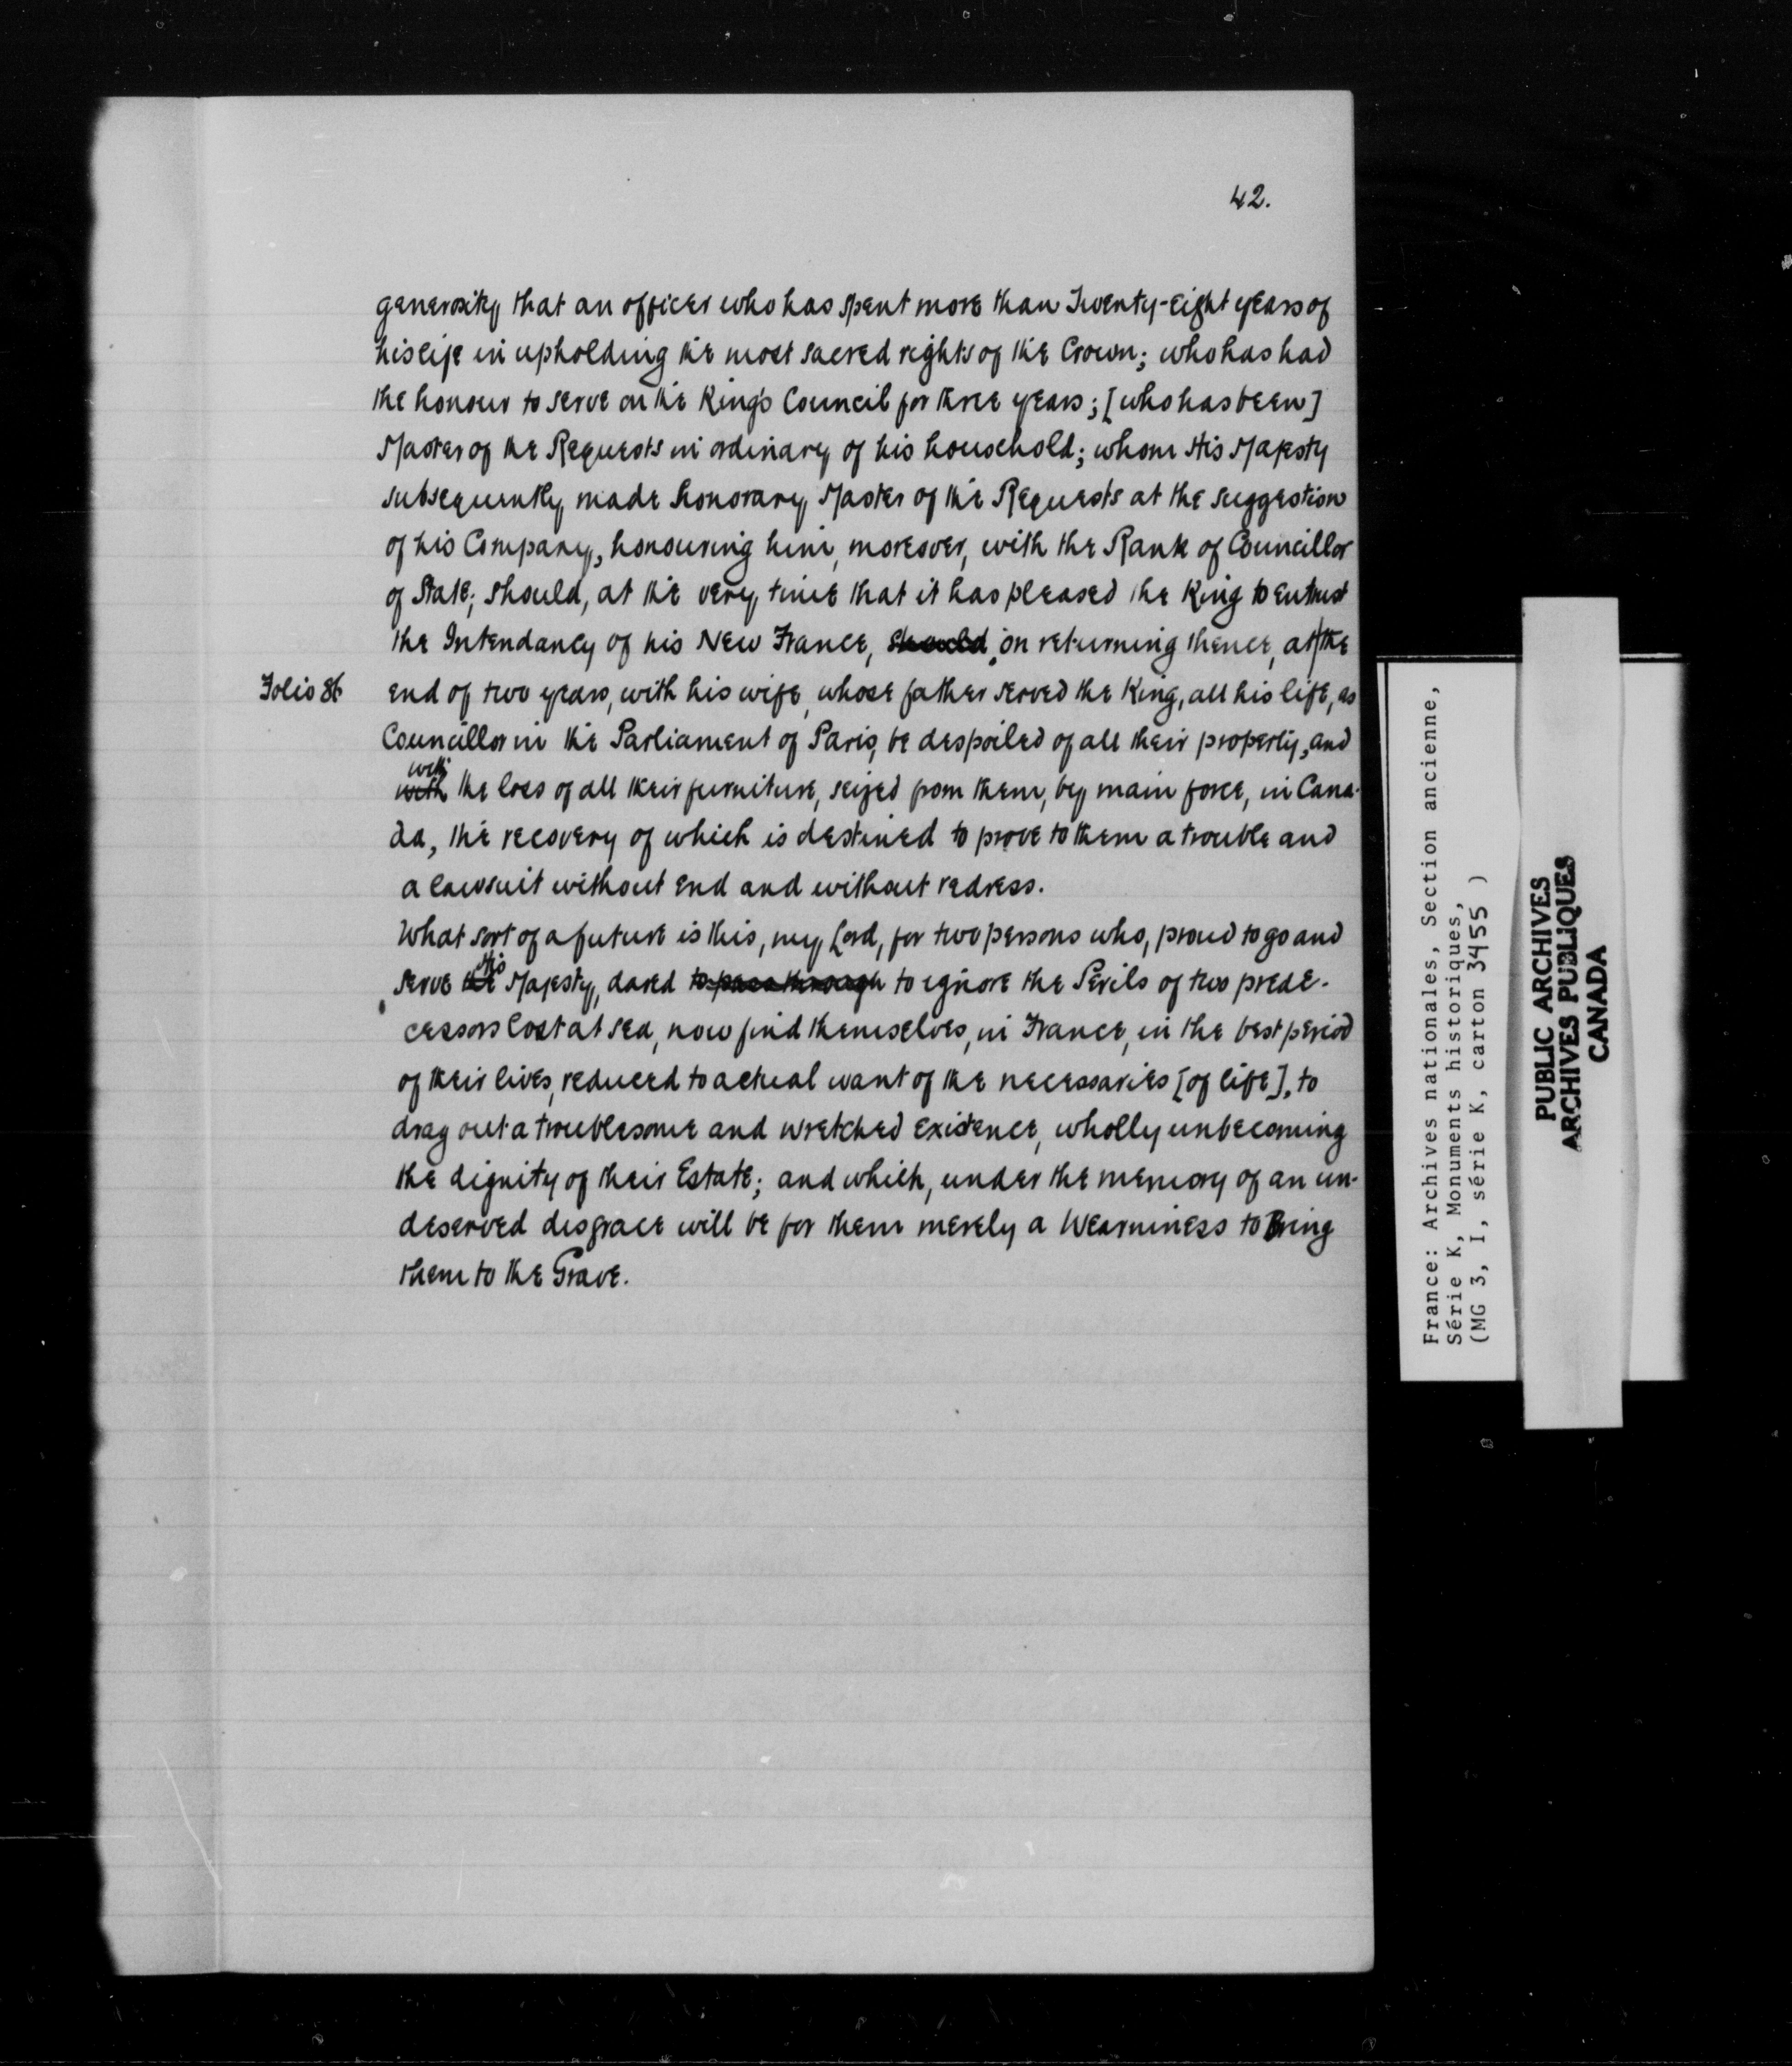 42.
generosity that an officer who has spent more than Twenty-eight years of
his life in upholding the most sacred rights of the Crown; who has had
the honour to serve on the King's Council for three years; [who has been]
Master of the Requests in ordinary of his household; whom His Majesty
subsequently made honorary Master of the Requests at the suggestion
of his Company, honouring him, moreover, with the Rank of Councillor
of State; should, at the very time that it has pleased the King to entrust
the Intendancy of his New France, should, on returning thence, at the
Folio 86 end of two years, with his wife, whose father served the King, all his life, as
Councillor in the Parliament of Paris, be despoiled of all their property, and
with
with the loss of all their furniture, seized from them, by main force, in Cana-
da, the recovery of which is destined to prove to them a trouble and
a lawsuit without end and without redress.
What sort of a future is this, my Lord, for two persons who, proud to go and
His
serve the Majesty, dared to pass through to ignore the Perils of two prede-
cessors lost at sea, now find themselves, in France, in the best period
of their lives, reduced to actual want of the necessaries [of life], to
drag out a troublesome and wretched existence, wholly unbecoming
the dignity of their Estate; and which, under the memory of an un-
deserved disgrace will be for them merely a Wearniness to Bring
them to the Grave.
France: Archives nationales, Section ancienne,
Série K, Monuments historiques,
(MG 3, I, série K, carton 3455 )
PUBLIC ARCHIVES
ARCHIVES PUBLIQUES
CANADA